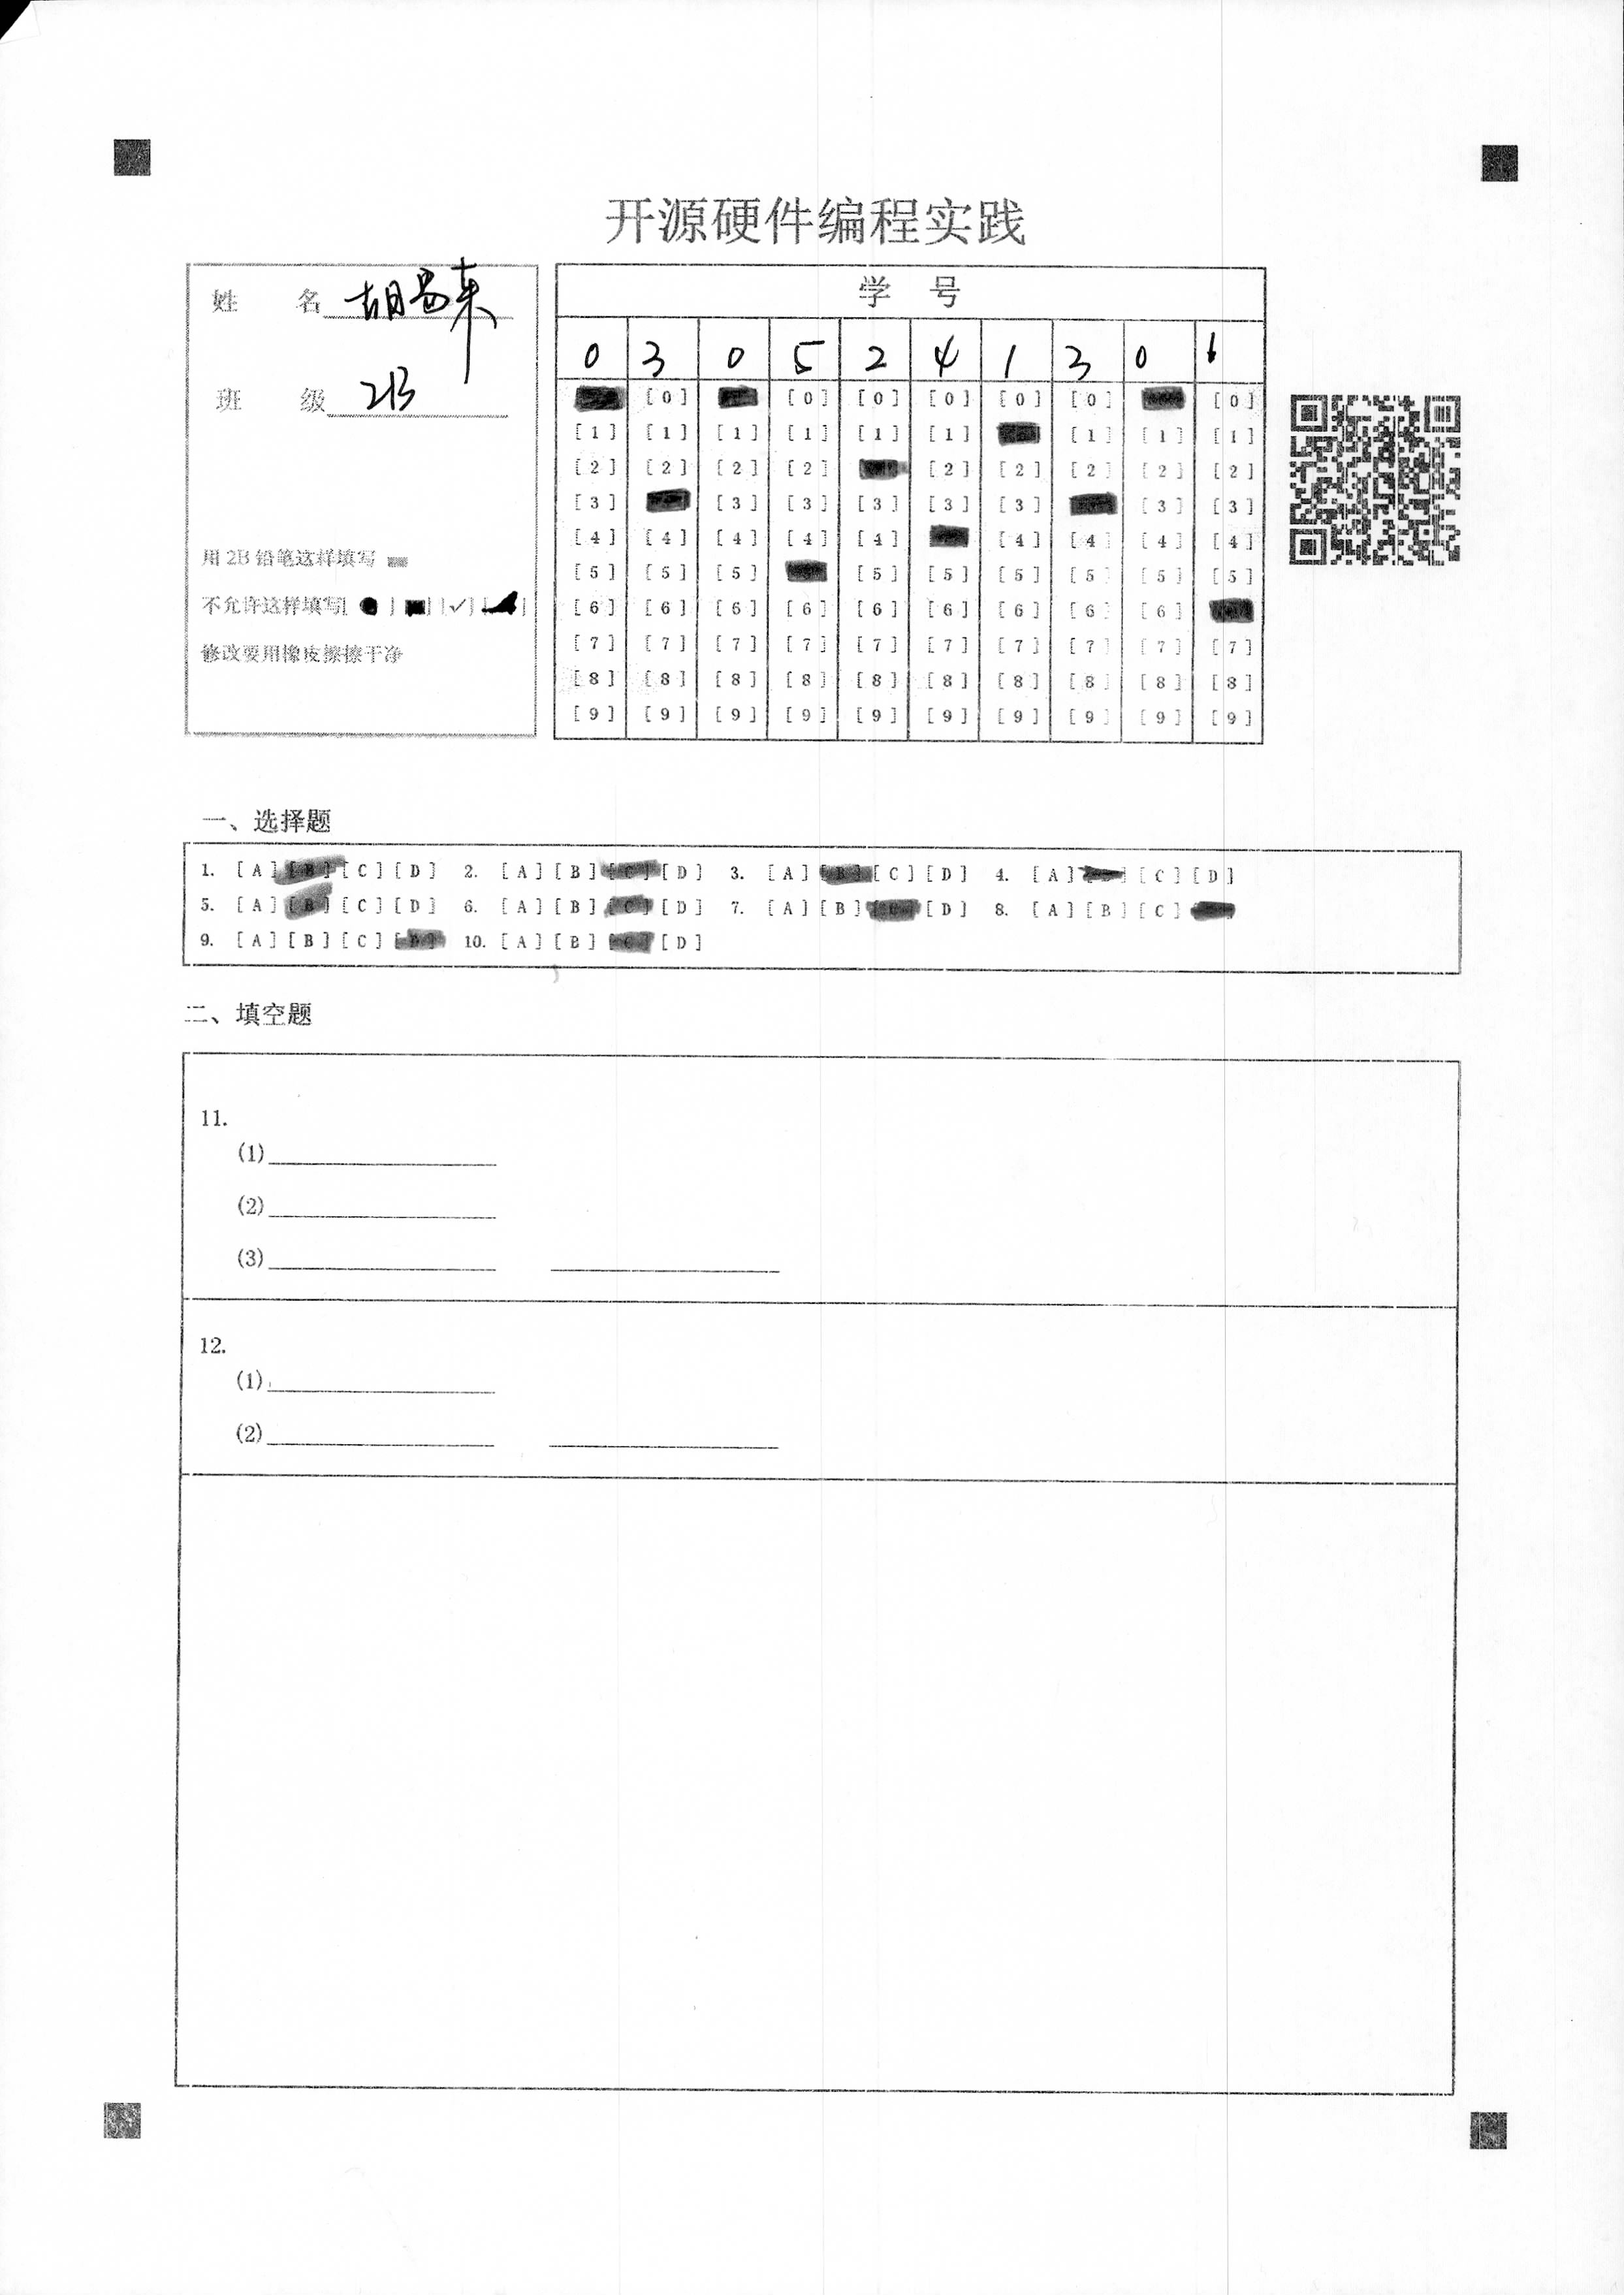 开源硬件编程实践
姓 名 胡昌来
班 级 2B
用 2B 铅笔这样填写
不允许这样填写[ ] [ ] [✓] [ ]
修改要用橡皮擦擦干净
学 号
0 3 0 5 2 4 1 3 0 6
[0] [0] [0] [0] [0] [0] [0]
[1] [1] [1] [1] [1] [1] [1] [1] [1]
[2] [2] [2] [2] [2] [2] [2] [2] [2]
[3] [3] [3] [3] [3] [3] [3] [3]
[4] [4] [4] [4] [4] [4] [4] [4] [4]
[5] [5] [5] [5] [5] [5] [5] [5] [5]
[6] [6] [6] [6] [6] [6] [6] [6] [6]
[7] [7] [7] [7] [7] [7] [7] [7] [7] [7]
[8] [8] [8] [8] [8] [8] [8] [8] [8] [8]
[9] [9] [9] [9] [9] [9] [9] [9] [9] [9]
一、选择题
1. [A] [B] [C] [D] 2. [A] [B] [C] [D] 3. [A] [B] [C] [D] 4. [A] [C] [D]
5. [A] [B] [C] [D] 6. [A] [B] [C] [D] 7. [A] [B] [C] [D] 8. [A] [B] [C]
9. [A] [B] [C] [D] 10. [A] [B] [C] [D]
二、填空题
11.
(1)
(2)
(3)
12.
(1)
(2)